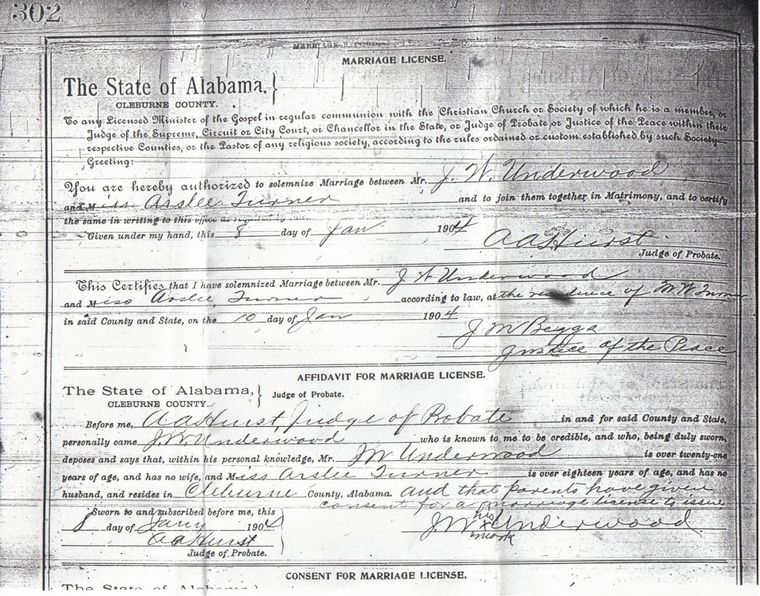 302
MARRIAGE LICENSE.
The State of Alabama,
CLEBURNE COUNTY.
To any Licensed Minister of the Gospel in regular communion with the Christian Church or Society of which he is a member, or
Judge of the Supreme, Circuit or City Court, or Chancellor in the State, or Judge of Probate or Justice of the Peace within their
respective Counties, or the Pastor of any religious society, according to the rules ordained or custom established by such Society—
Greeting:
You are hereby authorized to solemnize Marriage between Mr. J. W. Underwood
and Miss Arslee Turner and to join them together in Matrimony, and to certify
the same in writing to this office as required by law.
Given under my hand, this 8 day of Jan 1904
A A Hurst
Judge of Probate.
This Certifies that I have solemnized Marriage between Mr. J W Underwood
and Miss Arslee Turner according to law, at the residence of M. W.
in said County and State, on the 10 day of Jan 1904
J M Beggs
Justice of the Peace
AFFIDAVIT FOR MARRIAGE LICENSE.
The State of Alabama,
CLEBURNE COUNTY.
Judge of Probate.
Before me, A A Hurst, Judge of Probate in and for said County and State,
personally came J. W. Underwood who is known to me to be credible, and who, being duly sworn,
deposes and says that, within his personal knowledge, Mr. J W Underwood is over twenty-one
years of age, and has no wife, and Miss Arslee Turner is over eighteen years of age, and has no
husband, and resides in Cleburne County, Alabama. and that parents have given
consent for a marriage license to issue
Sworn to and subscribed before me, this
8 day of Jany 1904
A A Hurst
Judge of Probate.
his
J. W. x Underwood
mark
CONSENT FOR MARRIAGE LICENSE.
The State of Alabama